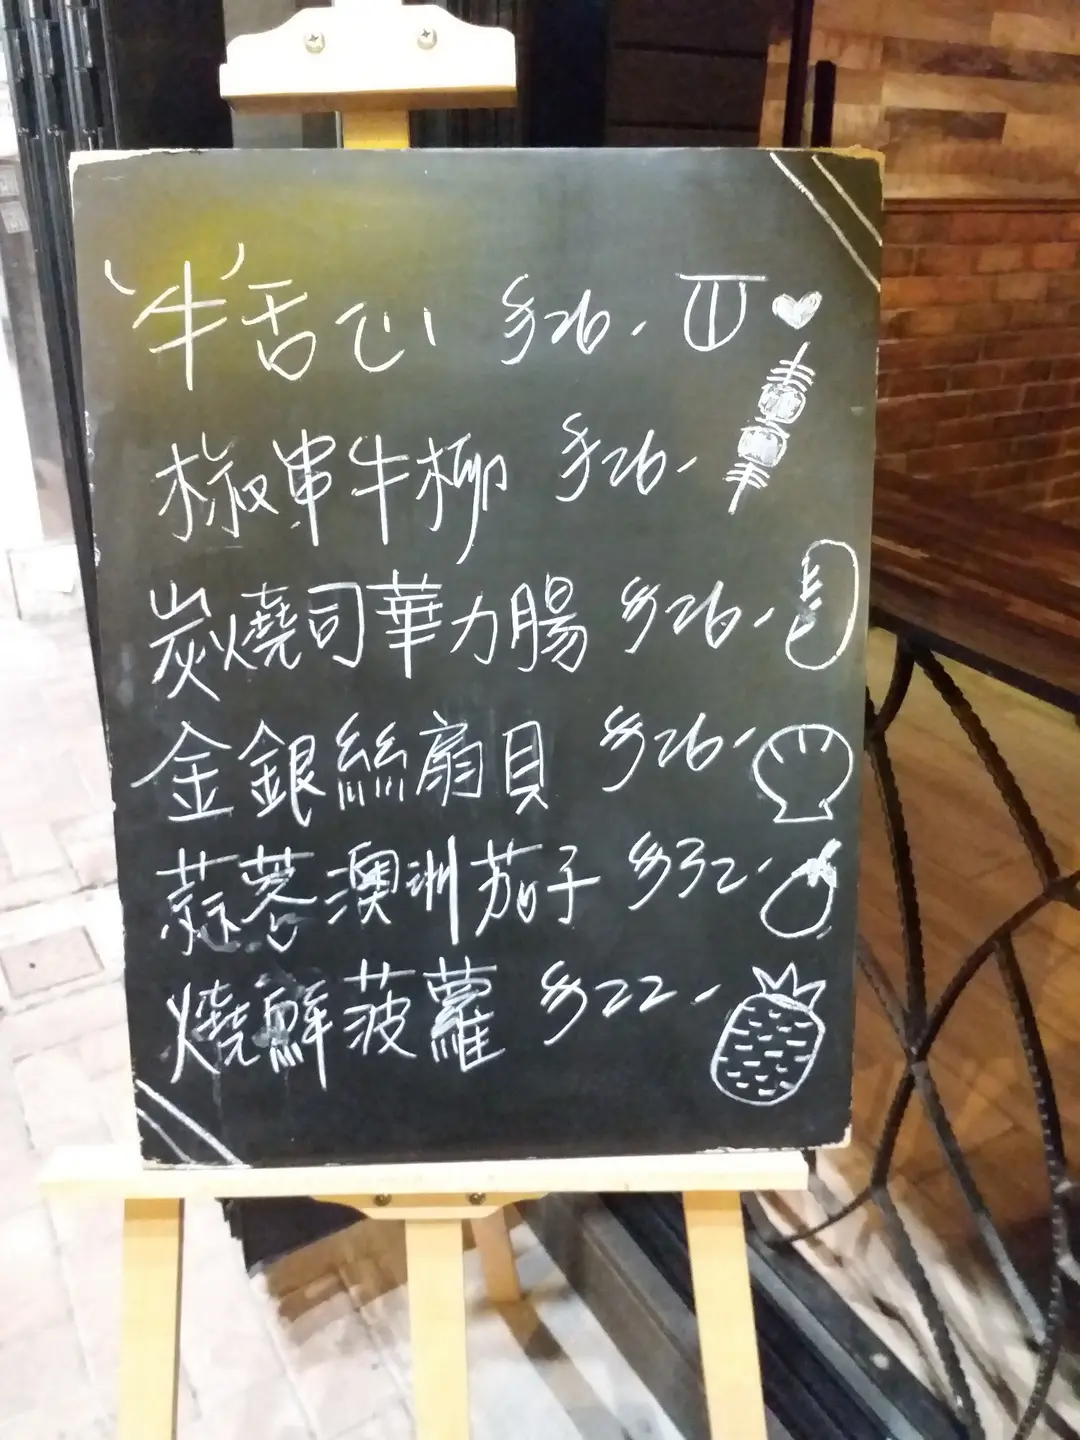 牛舌心 $26-
椒串牛柳 $26-
炭燒司華力腸 $26-
金銀絲扇貝 $26-
蒜蓉澳洲茄子 $32-
燒鮮菠蘿 $22-